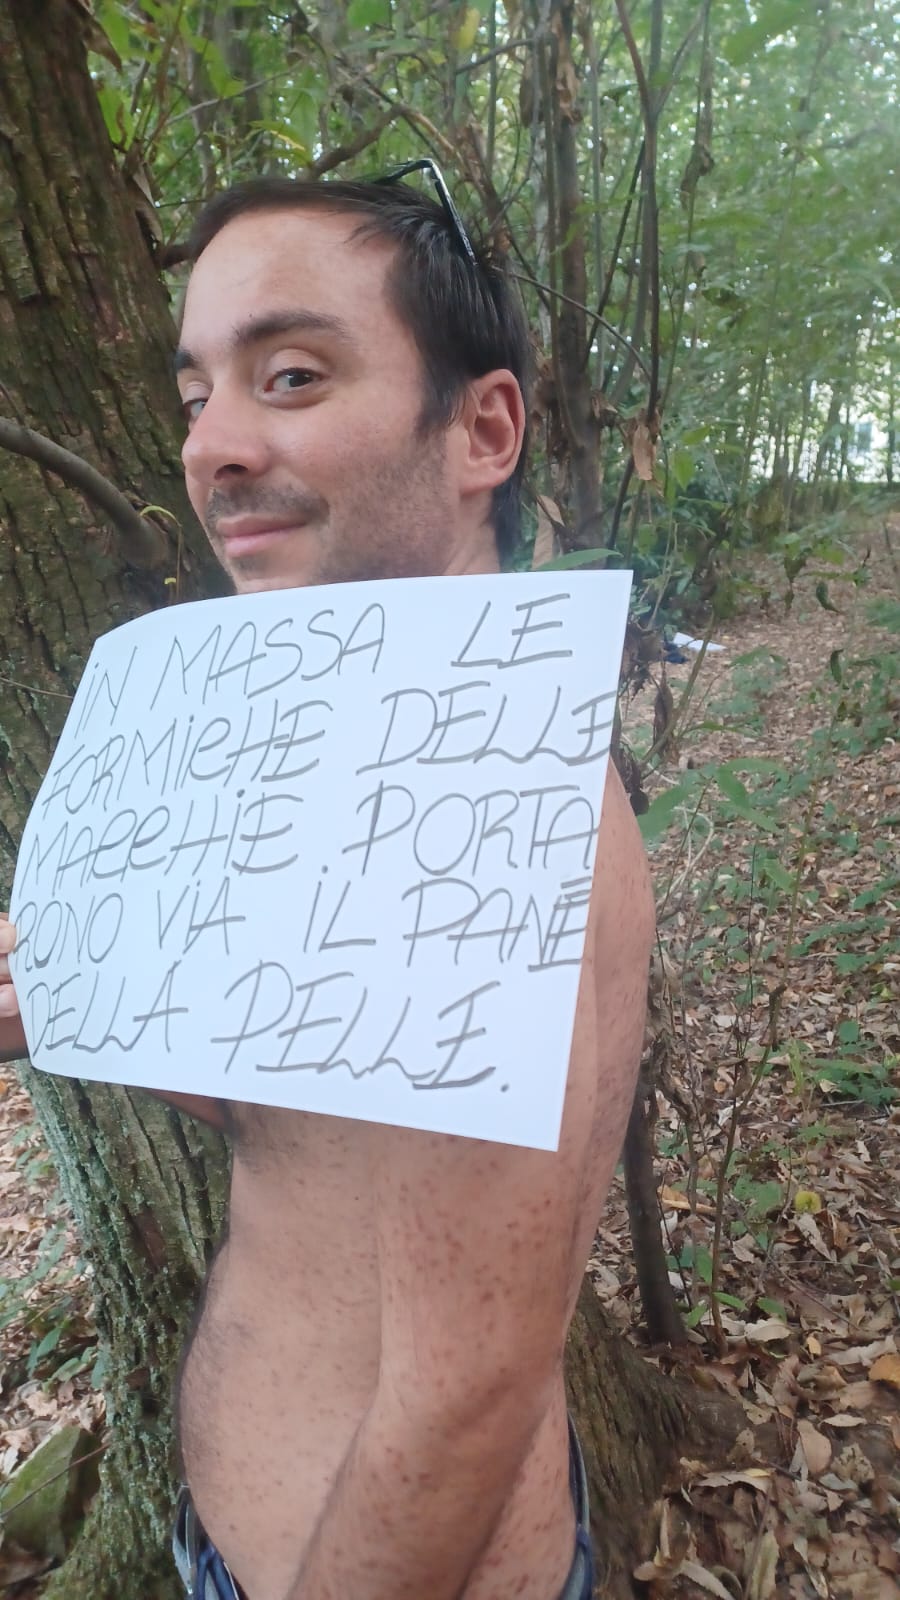 IN MASSA LE
FORMICHE DELLE
MACCHIE. PORTA
RONO VIA IL PANE
DELLA PELLE.